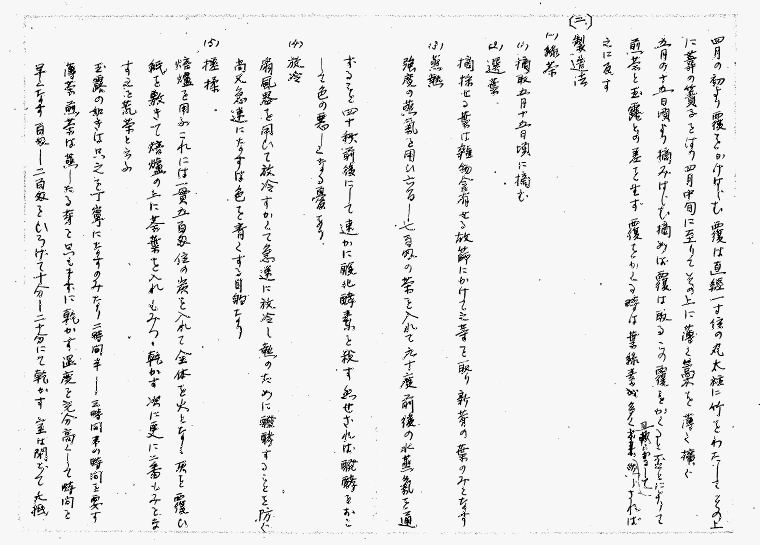 四月の初より覆をかけはじむ 覆は直経一寸位の丸太柱に竹をわたしてその上
に葦の簀子をはり四月中旬に至りてその上に薄く藁を薄く擴ぐ
五月の十五日頃より摘みはじむ摘めば覆は取る この覆をかくると否とによりて
煎茶と玉露との差を生ず 覆をかくる時は葉緑素が多く
之に反す
(二)製造法
(1)緑茶
(1)摘取 五月十五日頃に摘む
(2)選葉
摘採せる葉は雑物含有せる故篩にかけて之等を取り新芽の葉のみとなす
(3)蒸熱
強度の蒸氣を用ひ六百—七百匁の茶を入れて九十度前後の水蒸氣を通
すること四十秒前後にして速かに酸化酵素を殺す 然せざれば醗酵をおこ
して色の悪しくなる憂あり
(4)放冷
扇風器を用いて放冷すかくて急速に放冷し熱のために醗酵することを防ぐ
尚又急速になすは色を青くする目的なり
(5)揉捻
焙爐を用ふこれには一貫五百匁位の炭を入れて全体を火となし灰を覆ひ
紙を敷きて焙爐の上に茶葉を入れもみつゝ乾かす 次に更に二番もみとな
す之を荒茶と云ふ
玉露の如きは只之を丁寧になすのみなり二時間半—三時間半の時間を要す
薄茶 煎茶は蒸したる芽を只そのまゝに乾かす温度を充分高くして時間を
早くなす 百匁—二百匁をひろげて十分—二十分にて乾かす 室は閉じて大抵